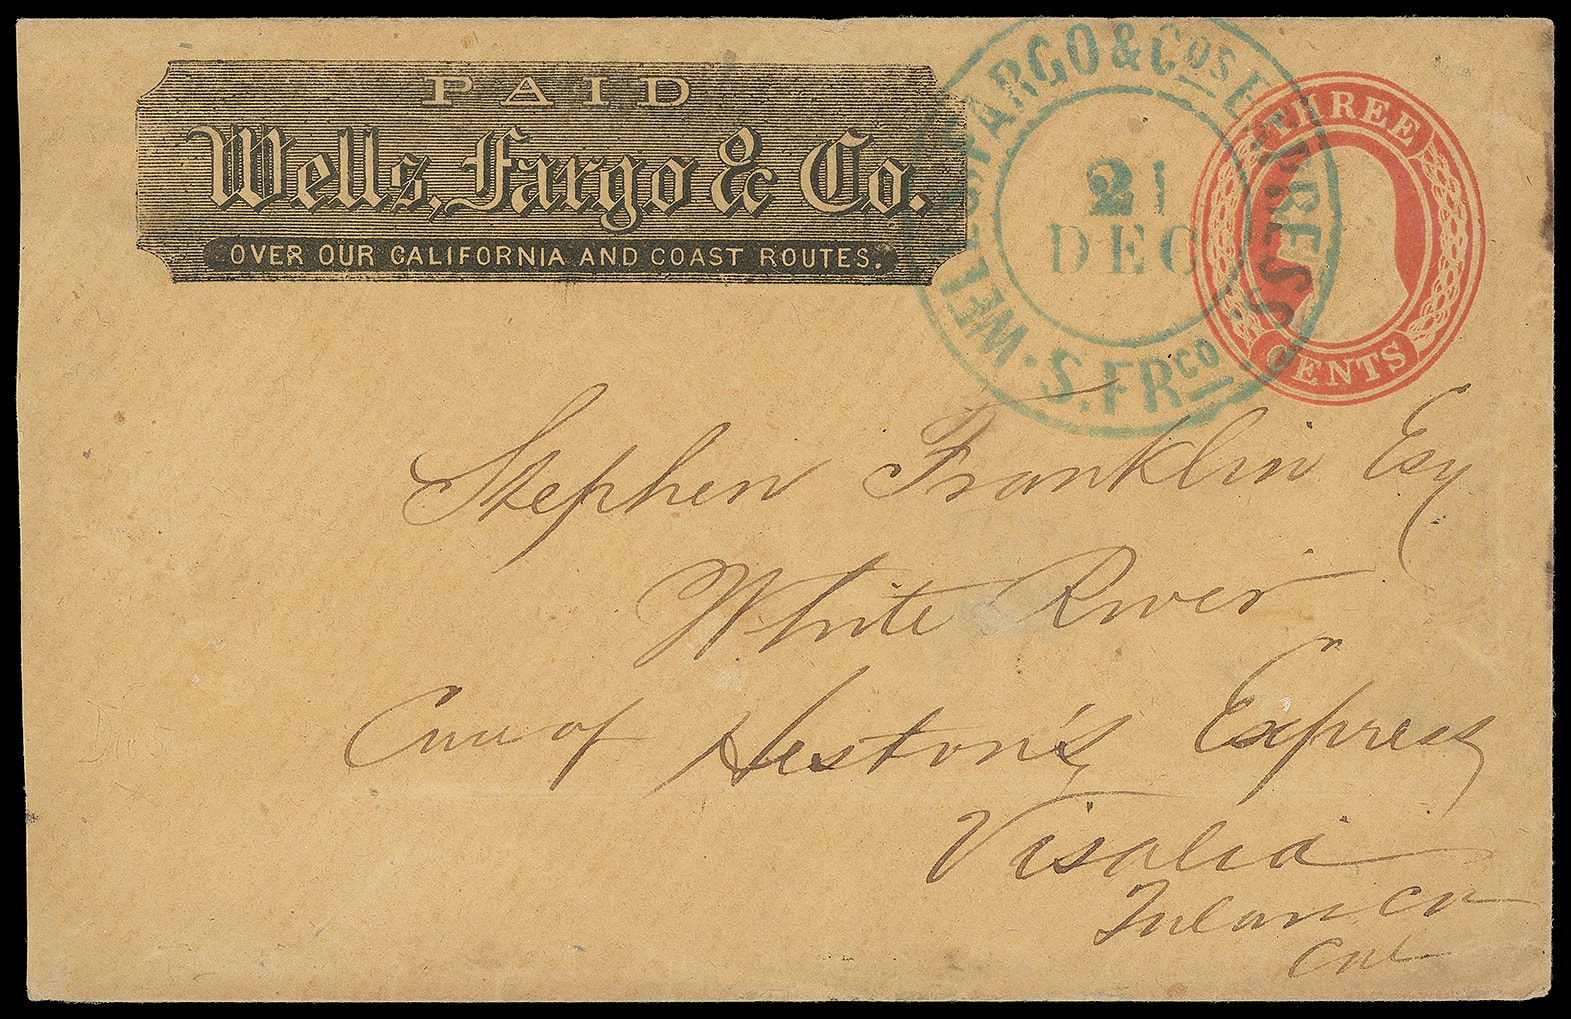 PAID
Wells, Fargo & Co.
OVER OUR CALIFORNIA AND COAST ROUTES.
WELLS, FARGO & Cos EXPRESS.
21
DEC
S. FRco
THREE
CENTS
Stephen Franklin Esq
White River
Care of Heston's Express
Visalia
Tulare Co
Cal